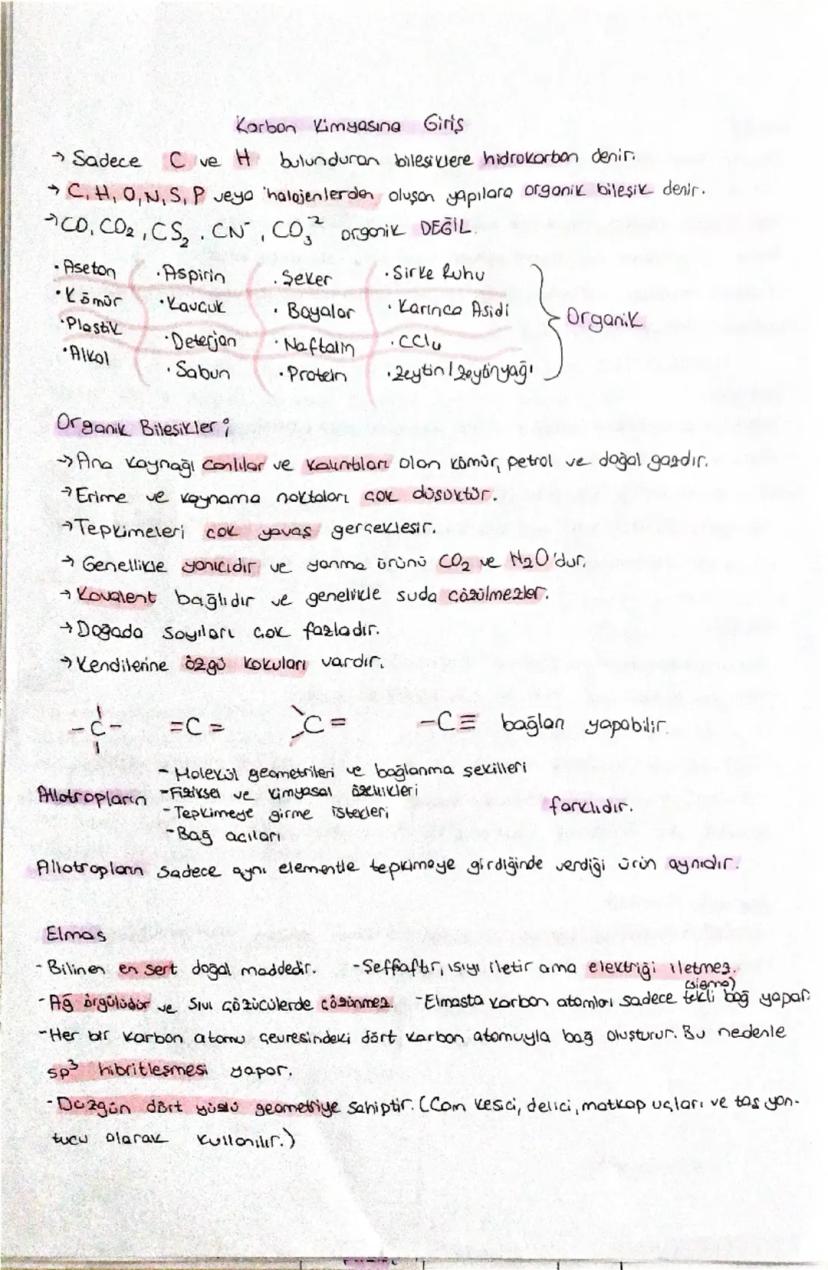 Karbon Kimyasına Giriş
→ Sadece C ve H bulunduran bileşiklere hidrokarbon denir.
→ C, H, O, N, S, P veya halojenlerden oluşan yapılara organik bileşik denir.
→ CO, CO₂, CS₂, CN⁻, CO₃⁻² organik DEĞİL.
• Aseton • Aspirin • Şeker • Sirke Ruhu
• Kömür • Kauçuk • Boyalar • Karınca Asidi
• Plastik • Deterjan • Naftalin • CCl₄
• Alkol • Sabun • Protein • Zeytin / Zeytinyağı
Organik
Organik Bileşikler;
→ Ana kaynağı canlılar ve kalıntıları olan kömür, petrol ve doğal gazdır.
→ Erime ve kaynama noktaları çok düşüktür.
→ Tepkimeleri çok yavaş gerçekleşir.
→ Genellikle yanıcıdır ve yanma ürünü CO₂ ve H₂O'dur.
→ Kovalent bağlıdır ve genelikle suda çözülmezler.
→ Doğada sayıları çok fazladır.
→ Kendilerine özgü kokuları vardır.
-C- =C= >C= -C≡ bağları yapabilir.
- Molekül geometrileri ve bağlanma şekilleri
Allotropların - Fiziksel ve kimyasal özellikleri
- Tepkimeye girme istekleri farklıdır.
- Bağ açıları
Allotropların sadece aynı elementle tepkimeye girdiğinde verdiği ürün aynıdır.
Elmas
- Bilinen en sert doğal maddedir. - Şeffaftır, ısıyı iletir ama elektriği iletmez.
- Ağ örgülüdür ve sıvı çözücülerde çözünmez - Elmasta karbon atomları sadece tekli (sigma) bağ yapar.
- Her bir karbon atomu çevresindeki dört karbon atomuyla bağ oluşturur. Bu nedenle
sp³ hibritleşmesi yapar.
- Düzgün dört yüzlü geometriye sahiptir. (Cam kesici, delici, matkap uçları ve taş yon-
tucu olarak kullanılır.)